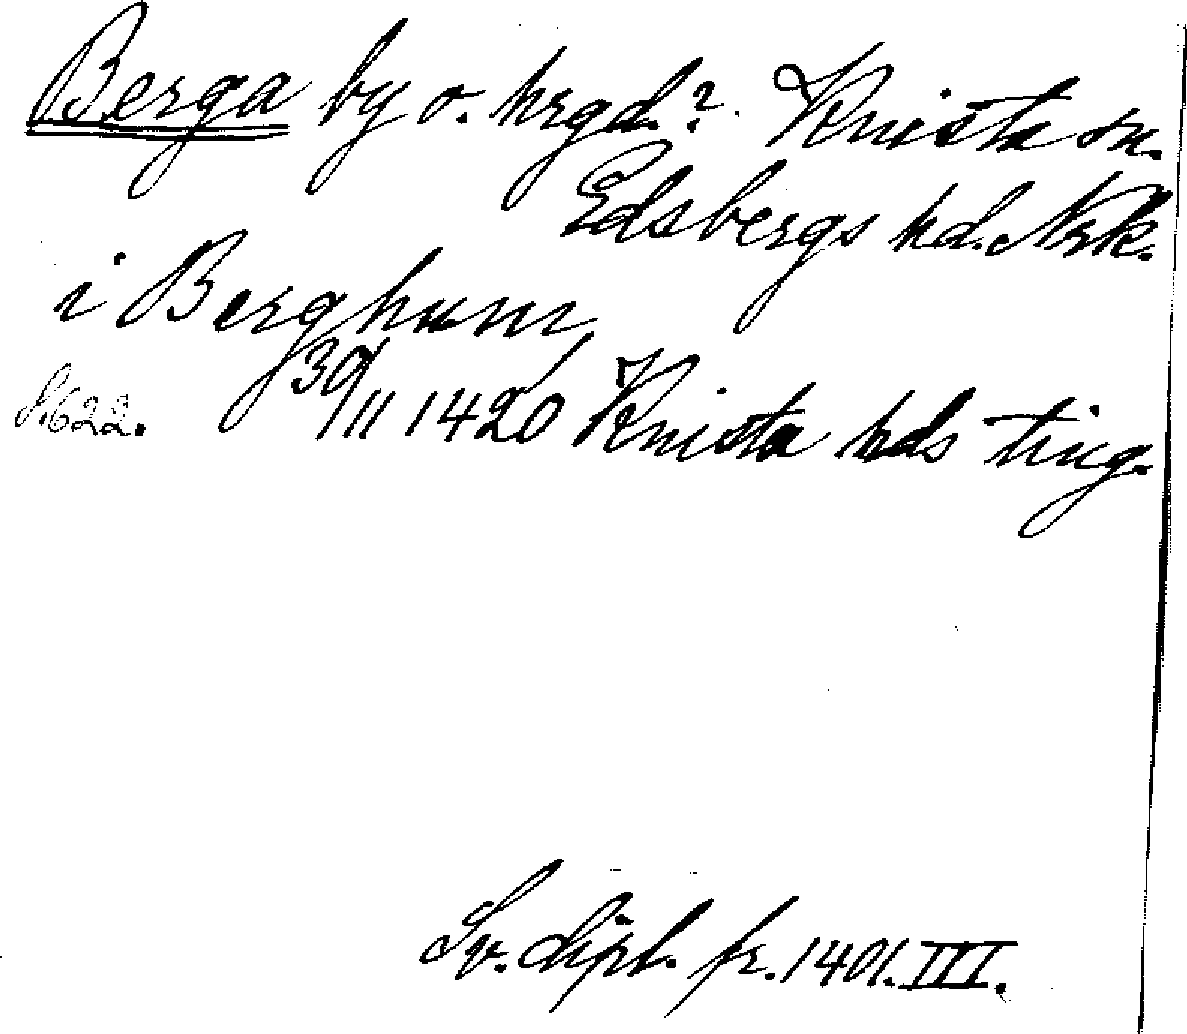 Berga by o. hrgd.? Knista sn.
Edsbergs hd. Nrk.
i Berghum
S. 622. 30/11 1420 Knista hds ting.
Sv. dipl. fr. 1401. III.